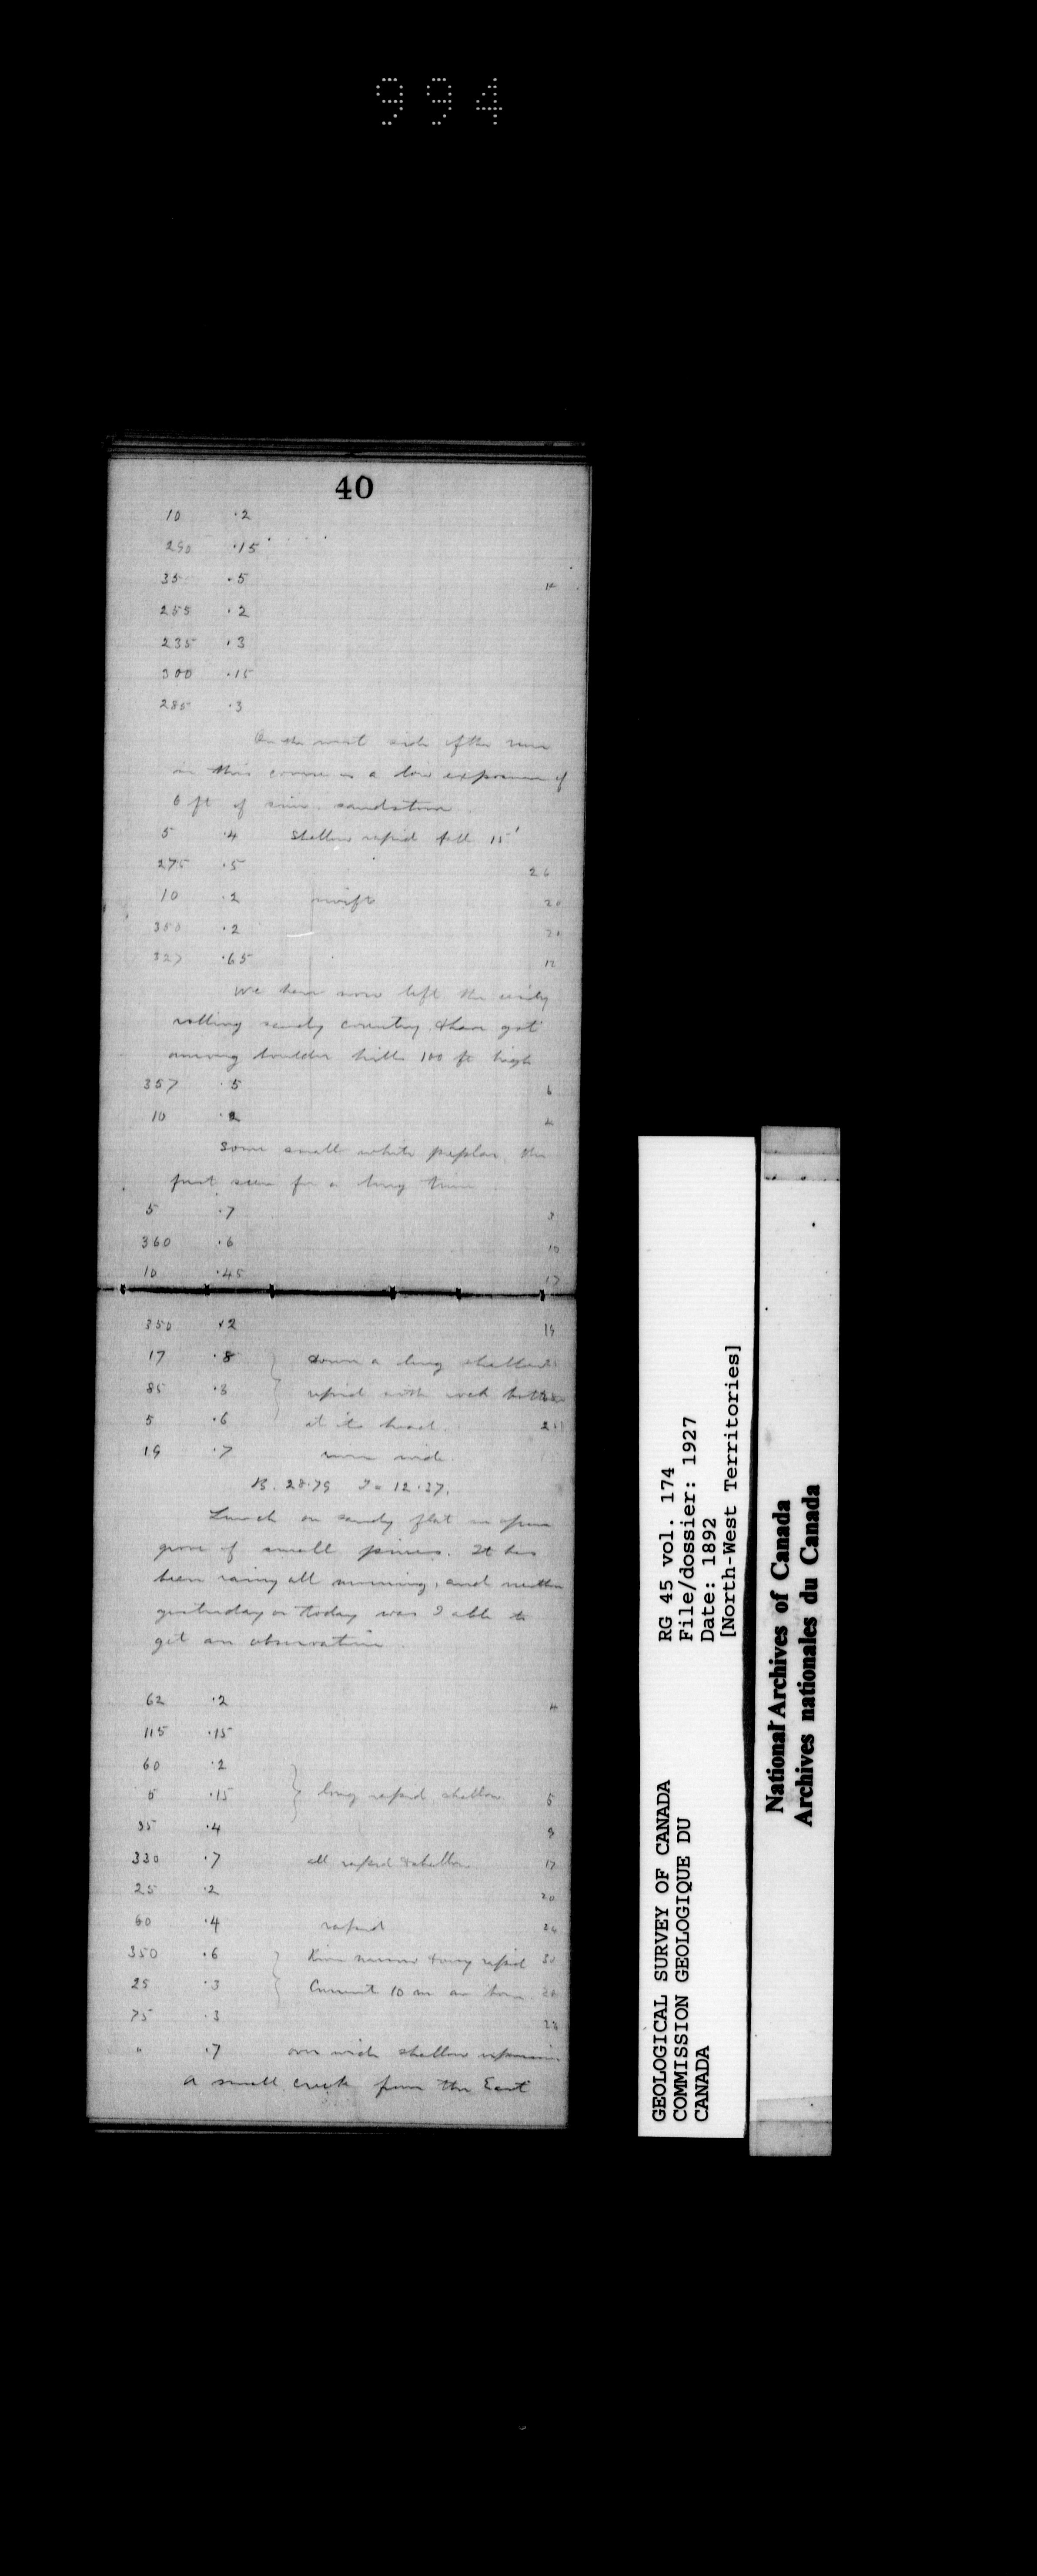 994
40
10 .2
290 .15
35 .5 14
255 .2
235 .3
300 .15
285 .3
On the west side of the river
in this course is a low exposure of
6 ft of sandstone.
5 .4 Shallow rapid fall 15'
275 .5 26
10 .2 swift 20
350 .2 20
327 .65 12
We have now left the
rolling sandy country & have got
among boulder hills 100 ft high
357 .5 6
10 .2 4
Some small white poplar, the
first seen for a long time
5 .7 3
360 .6 10
10 .45 17
350 .2 19
17 .8 down a long shallow
85 .3 rapid with rock bottom
5 .6 at its head.
19 .7 river wide.
B. 28.79 T= 12.37.
Lunch on sandy flat in open
grove of small pines. It has
been rainy all morning, and neither
yesterday or today was I able to
get an observation.
62 .2 4
115 .15
60 .2
5 .15 long rapid shallow 5
35 .4 9
330 .7 all rapid & shallow 17
25 .2 20
60 .4 rapid 24
350 .6 River narrow & very rapid 30
25 .3 Current 10 m an hour. 28
75 .3 28
" .7 over wide shallow expansion
A small creek from the East
GEOLOGICAL SURVEY OF CANADA
COMMISSION GEOLOGIQUE DU
CANADA
RG 45 vol. 174
File/dossier: 1927
Date: 1892
[North-West Territories]
National Archives of Canada
Archives nationales du Canada